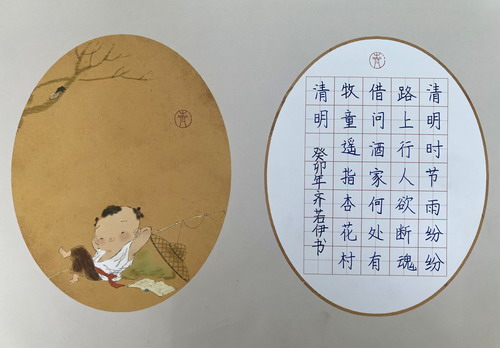 清明时节雨纷纷
路上行人欲断魂
借问酒家何处有
牧童遥指杏花村
清明
癸卯年齐若伊书